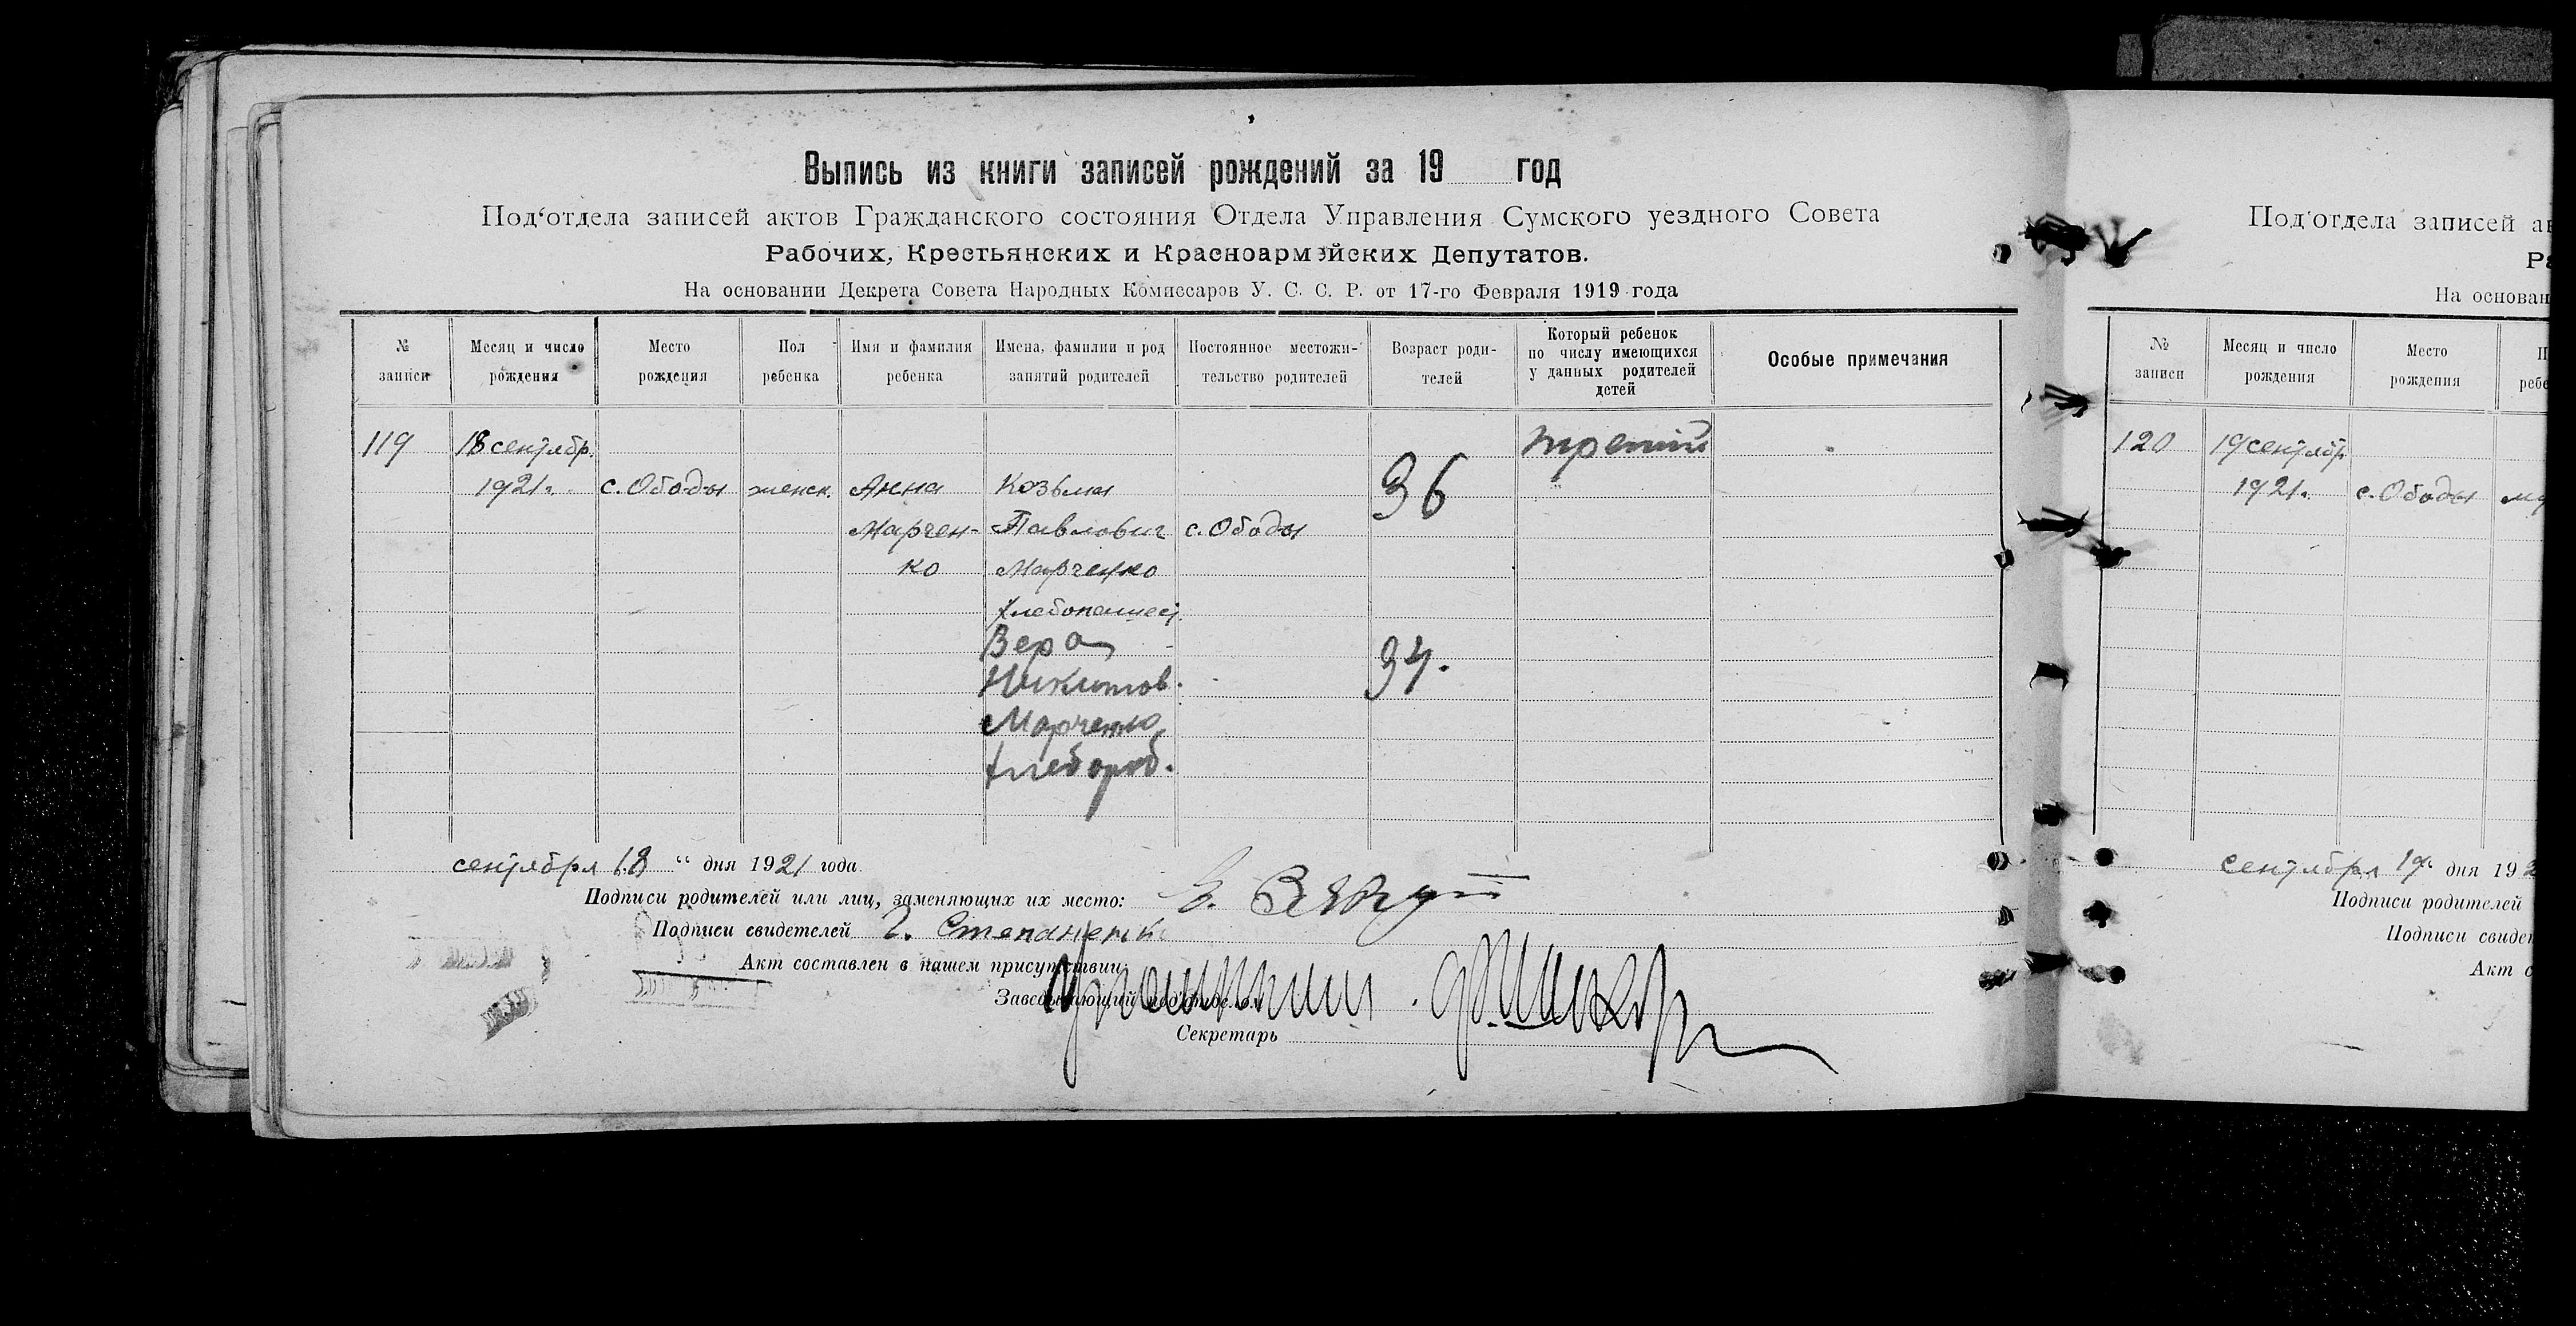 Выпись из книги записей рождений за 19 год
Под‘отдела записей актов Гражданского состояния Отдела Управления Сумского уездного Совета
Рабочих, Крестьянских и Красноармейских Депутатов.
На основании Декрета Совета Народных Комиссаров У. С. С. Р. от 17-го Февраля 1919 года
№ записи
Месяц и число рождения
Место рождения
Пол ребенка
Имя и фамилия ребенка
Имена, фамилии и род занятий родителей
Постоянное местожительство родителей
Возраст родителей
Который ребенок по числу имеющихся у данных родителей детей
Особые примечания
119 18 сентябр. третий
1921г. с. Ободы женск. Анна Козьма 36
Марчен- Павлович с. Ободы
ко Марченко
хлебопашец
Вера 34.
Никитов.
Марченко
хлебороб.
сентября 18 “ дня 1921 года
Подписи родителей или лиц, заменяющих их место:
Подписи свидетелей Г. Степаненк
Акт составлен в нашем присутствии:
Заведывающий под‘отделом
Секретарь
Под‘отдела записей
На основан
№ записи
Месяц и число рождения
Место рождения
120 19 сентябр
1921г. с. Ободы
сентября 19 “ дня 192
Подписи родителей
Подписи свидет
Акт с